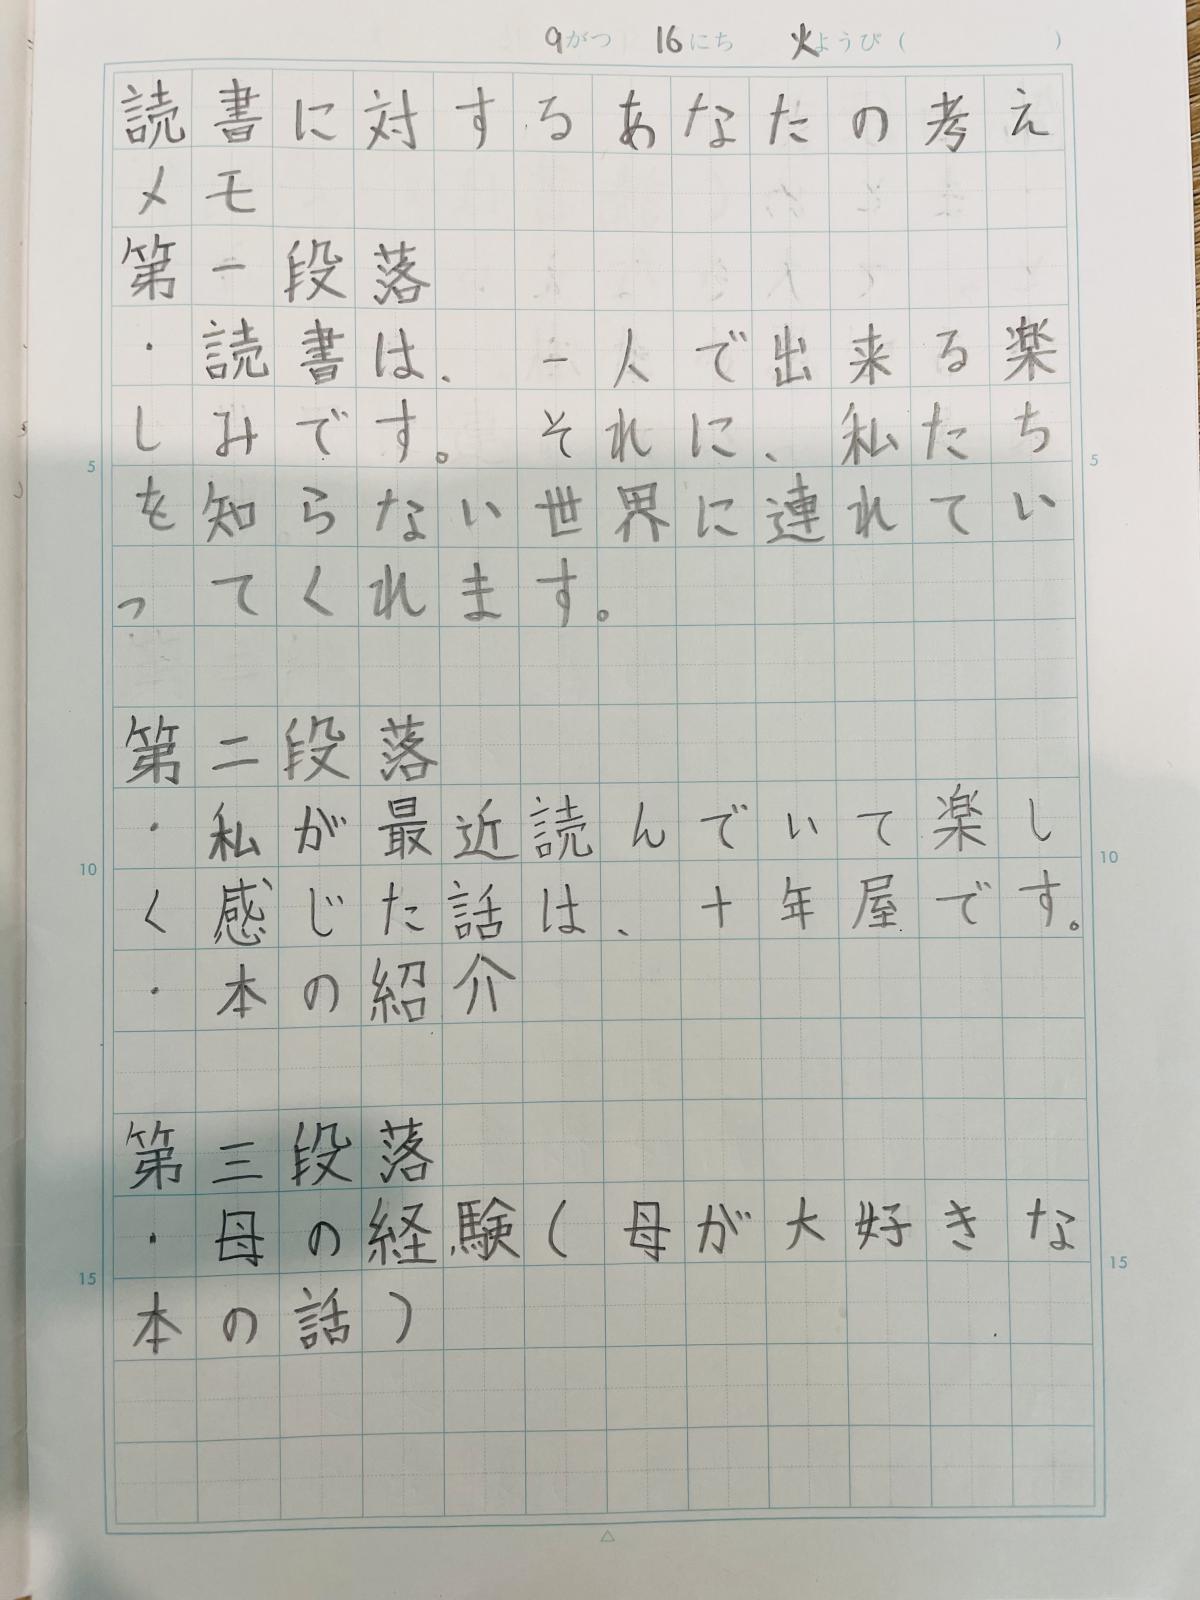 9がつ 16にち 火ようび( )
読書に対するあなたの考え
メモ
第一段落
・読書は、一人で出来る楽
しみです。それに、私たち
5 5
を知らない世界に連れてい
ってくれます。
第二段落
・私が最近読んでいて楽し
10 10
く感じた話は、十年屋です。
・本の紹介
第三段落
・母の経験(母が大好きな
15 15
本の話)